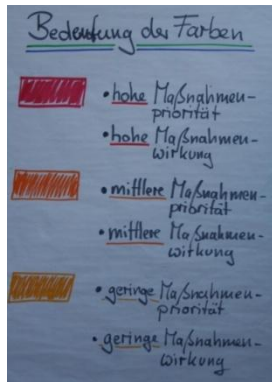 Bedeutung der Farben
• hohe Maßnahmen-
priorität
• hohe Maßnahmen-
wirkung
• mittlere Maßnahmen-
priorität
• mittlere Maßnahmen-
wirkung
• geringe Maßnahmen-
priorität
• geringe Maßnahmen-
wirkung